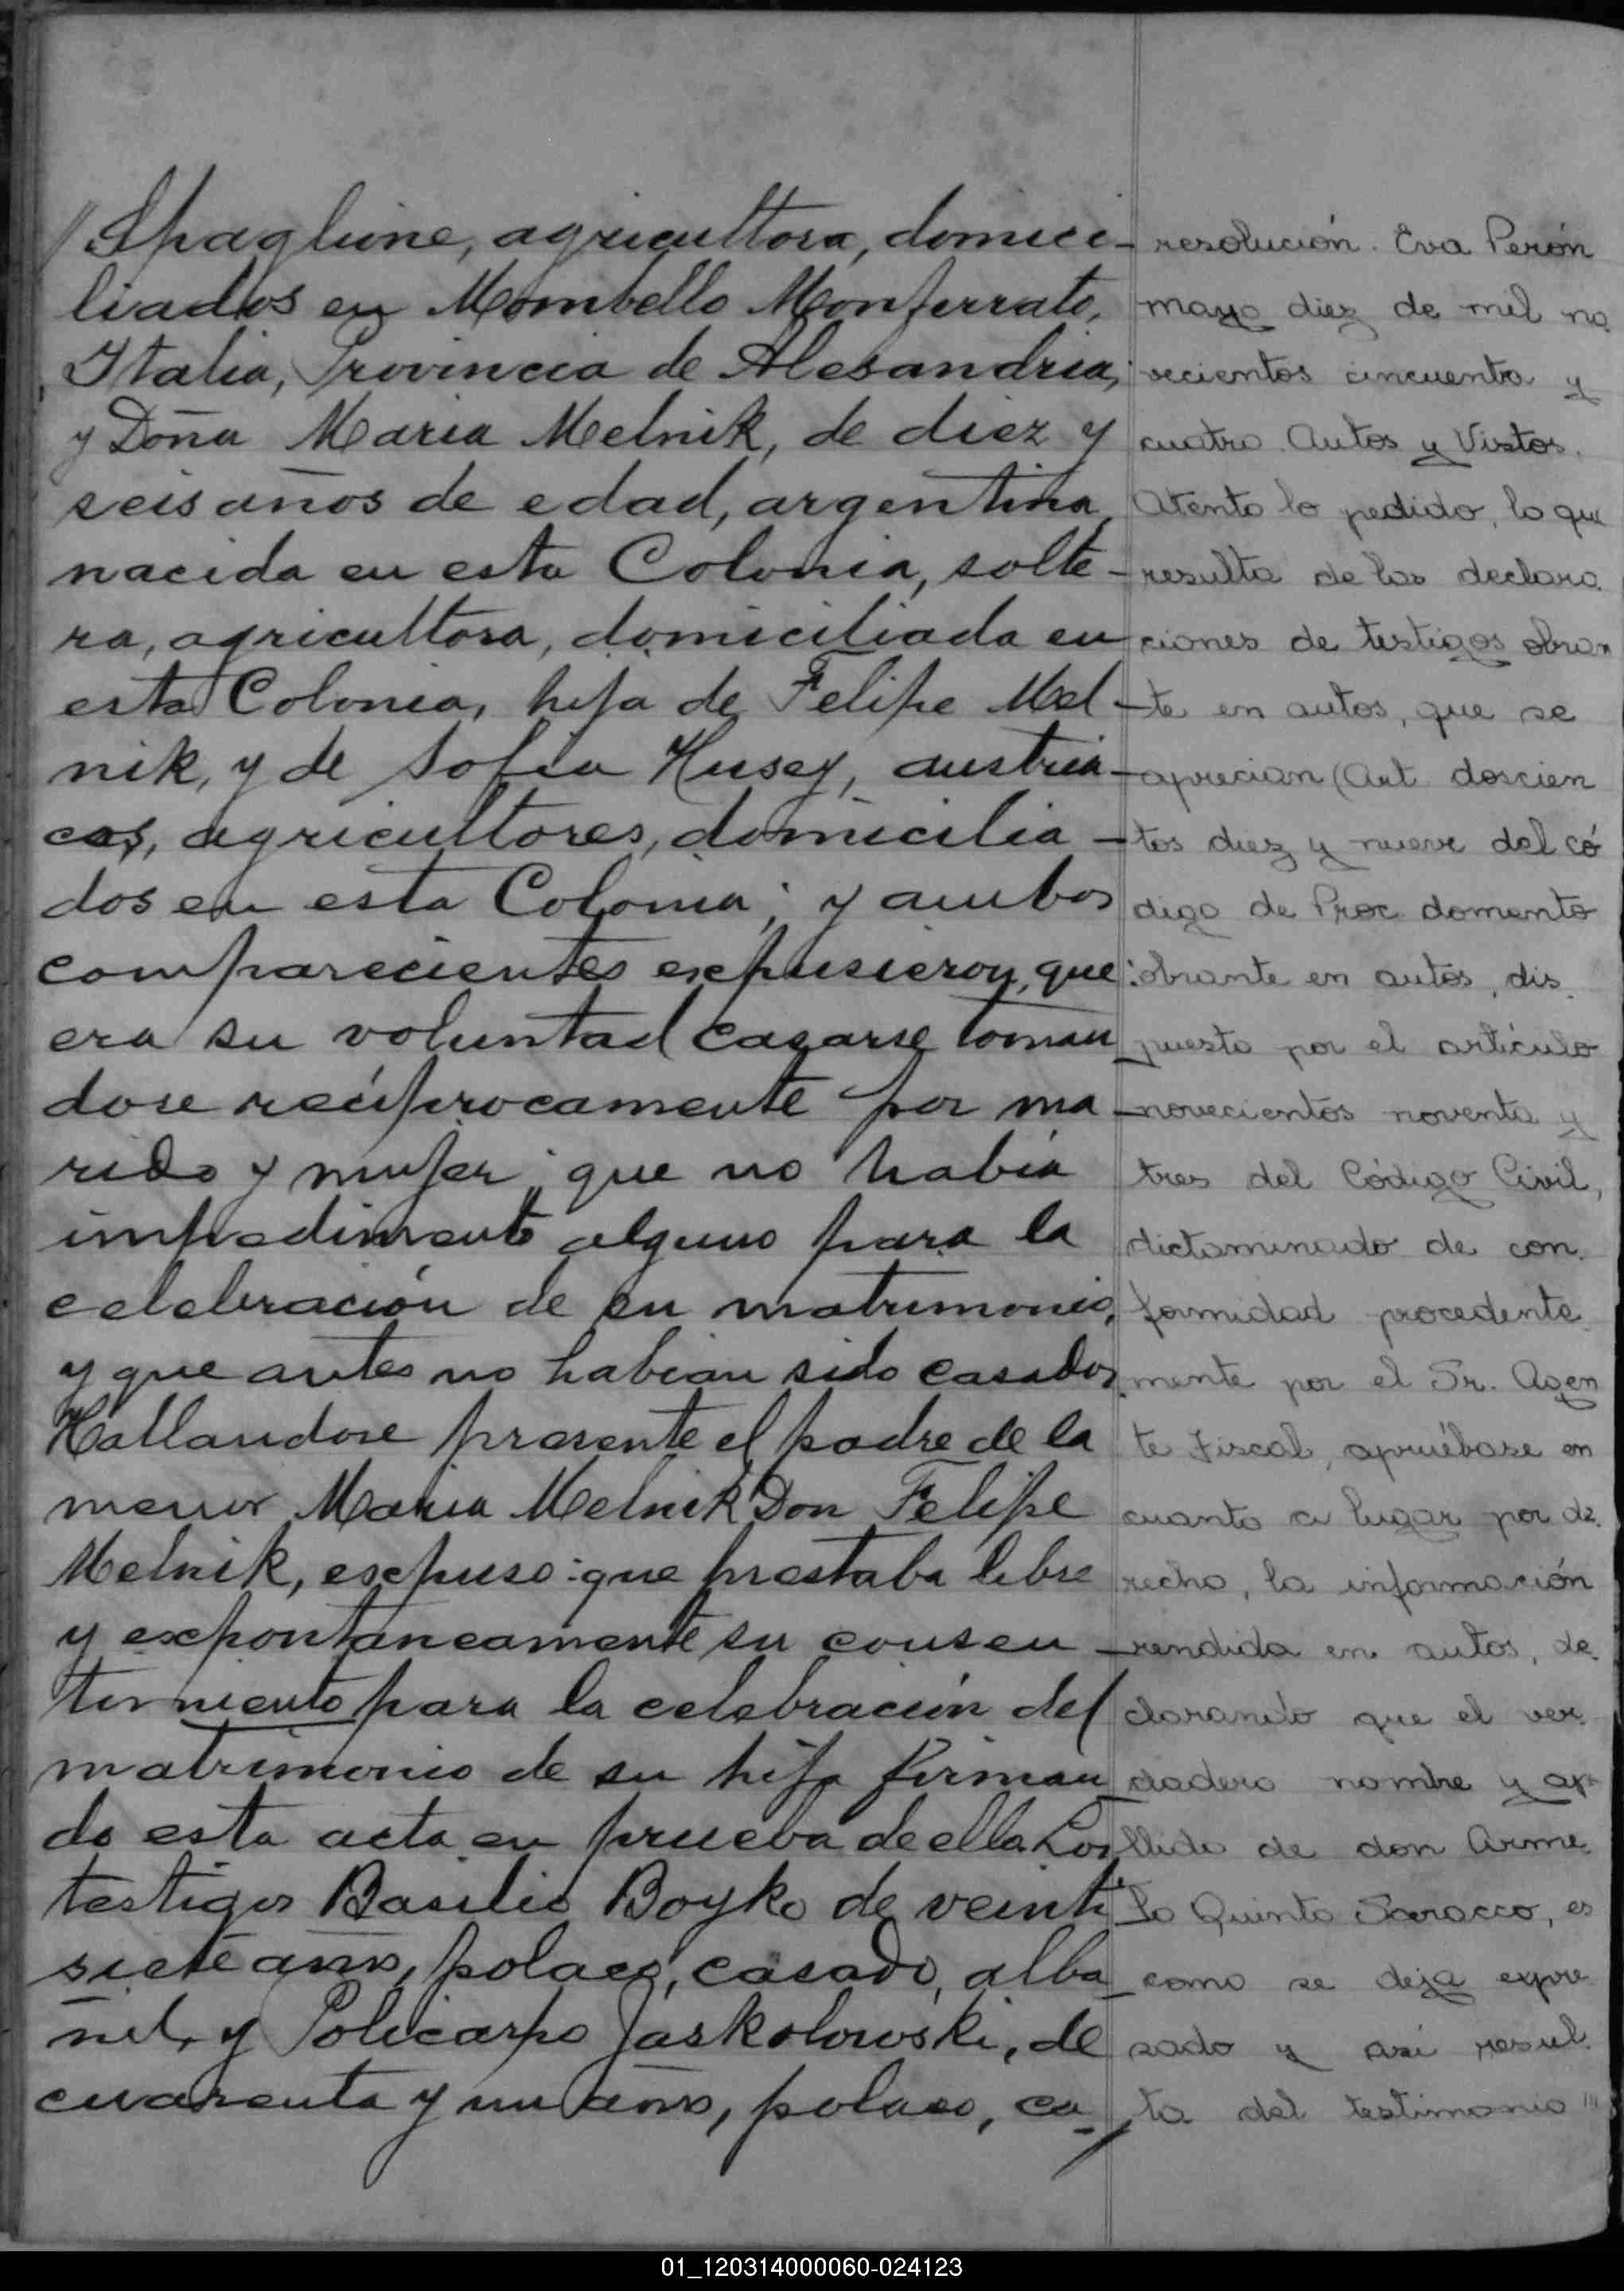 // Spaglione, agricultora, domici-
liados en Mombello Monferrato,
Italia, Provincia de Alesandria,
y Doña Maria Melnik, de diez y
seis años de edad, argentina,
nacida en esta Colonia, solte-
ra, agricultora, domiciliada en
esta Colonia, hija de Felipe Mel-
nik, y de Sofia Husey, austria-
cos, agricultores, domicilia-
dos en esta Colonia; y ambos
comparecientes expusieron, que
era su voluntad casarse toman-
dose recíprocamente por ma-
rido y mujer; que no habia
impedimento alguno para la
celebración de su matrimonio,
y que antes no habian sido casados.
Hallandose presente el padre de la
menor Maria Melnik Don Felipe
Melnik, expuso: que prestaba libre
y expontaneamente su consen-
timiento para la celebración del
matrimonio de su hija firman-
do esta acta en prueba de ello. Los
testigos Basilio Boyko de veinti
siete años, polaco, casado, alba-
ñil, y Policarpo Jaskolowski, de
cuarenta y un años, polaco, ca-
resolución. Eva Perón
mayo diez de mil no.
vecientos cincuenta y
cuatro. Autos y Vistos.
Atento lo pedido, lo que
resulta de las declara.
ciones de testigos obran
te en autos, que se
aprecian (Art. doscien
tos diez y nueve del có
digo de Proc. domento
obrante en autos, dis.
puesto por el artículo
novecientos noventa y
tres del Código Civil,
dictaminado de con.
formidad procedente.
mente por el Sr. Agen
te Fiscal, apruébase en
cuanto a lugar por de.
recho, la información
rendida en autos, de.
clarando que el ver.
dadero nombre y ape
llido de don Arme.
lo Quinto Saracco, es
como se deja expre
sado y asi resul.
ta del testimonio ///
01_120314000060-024123